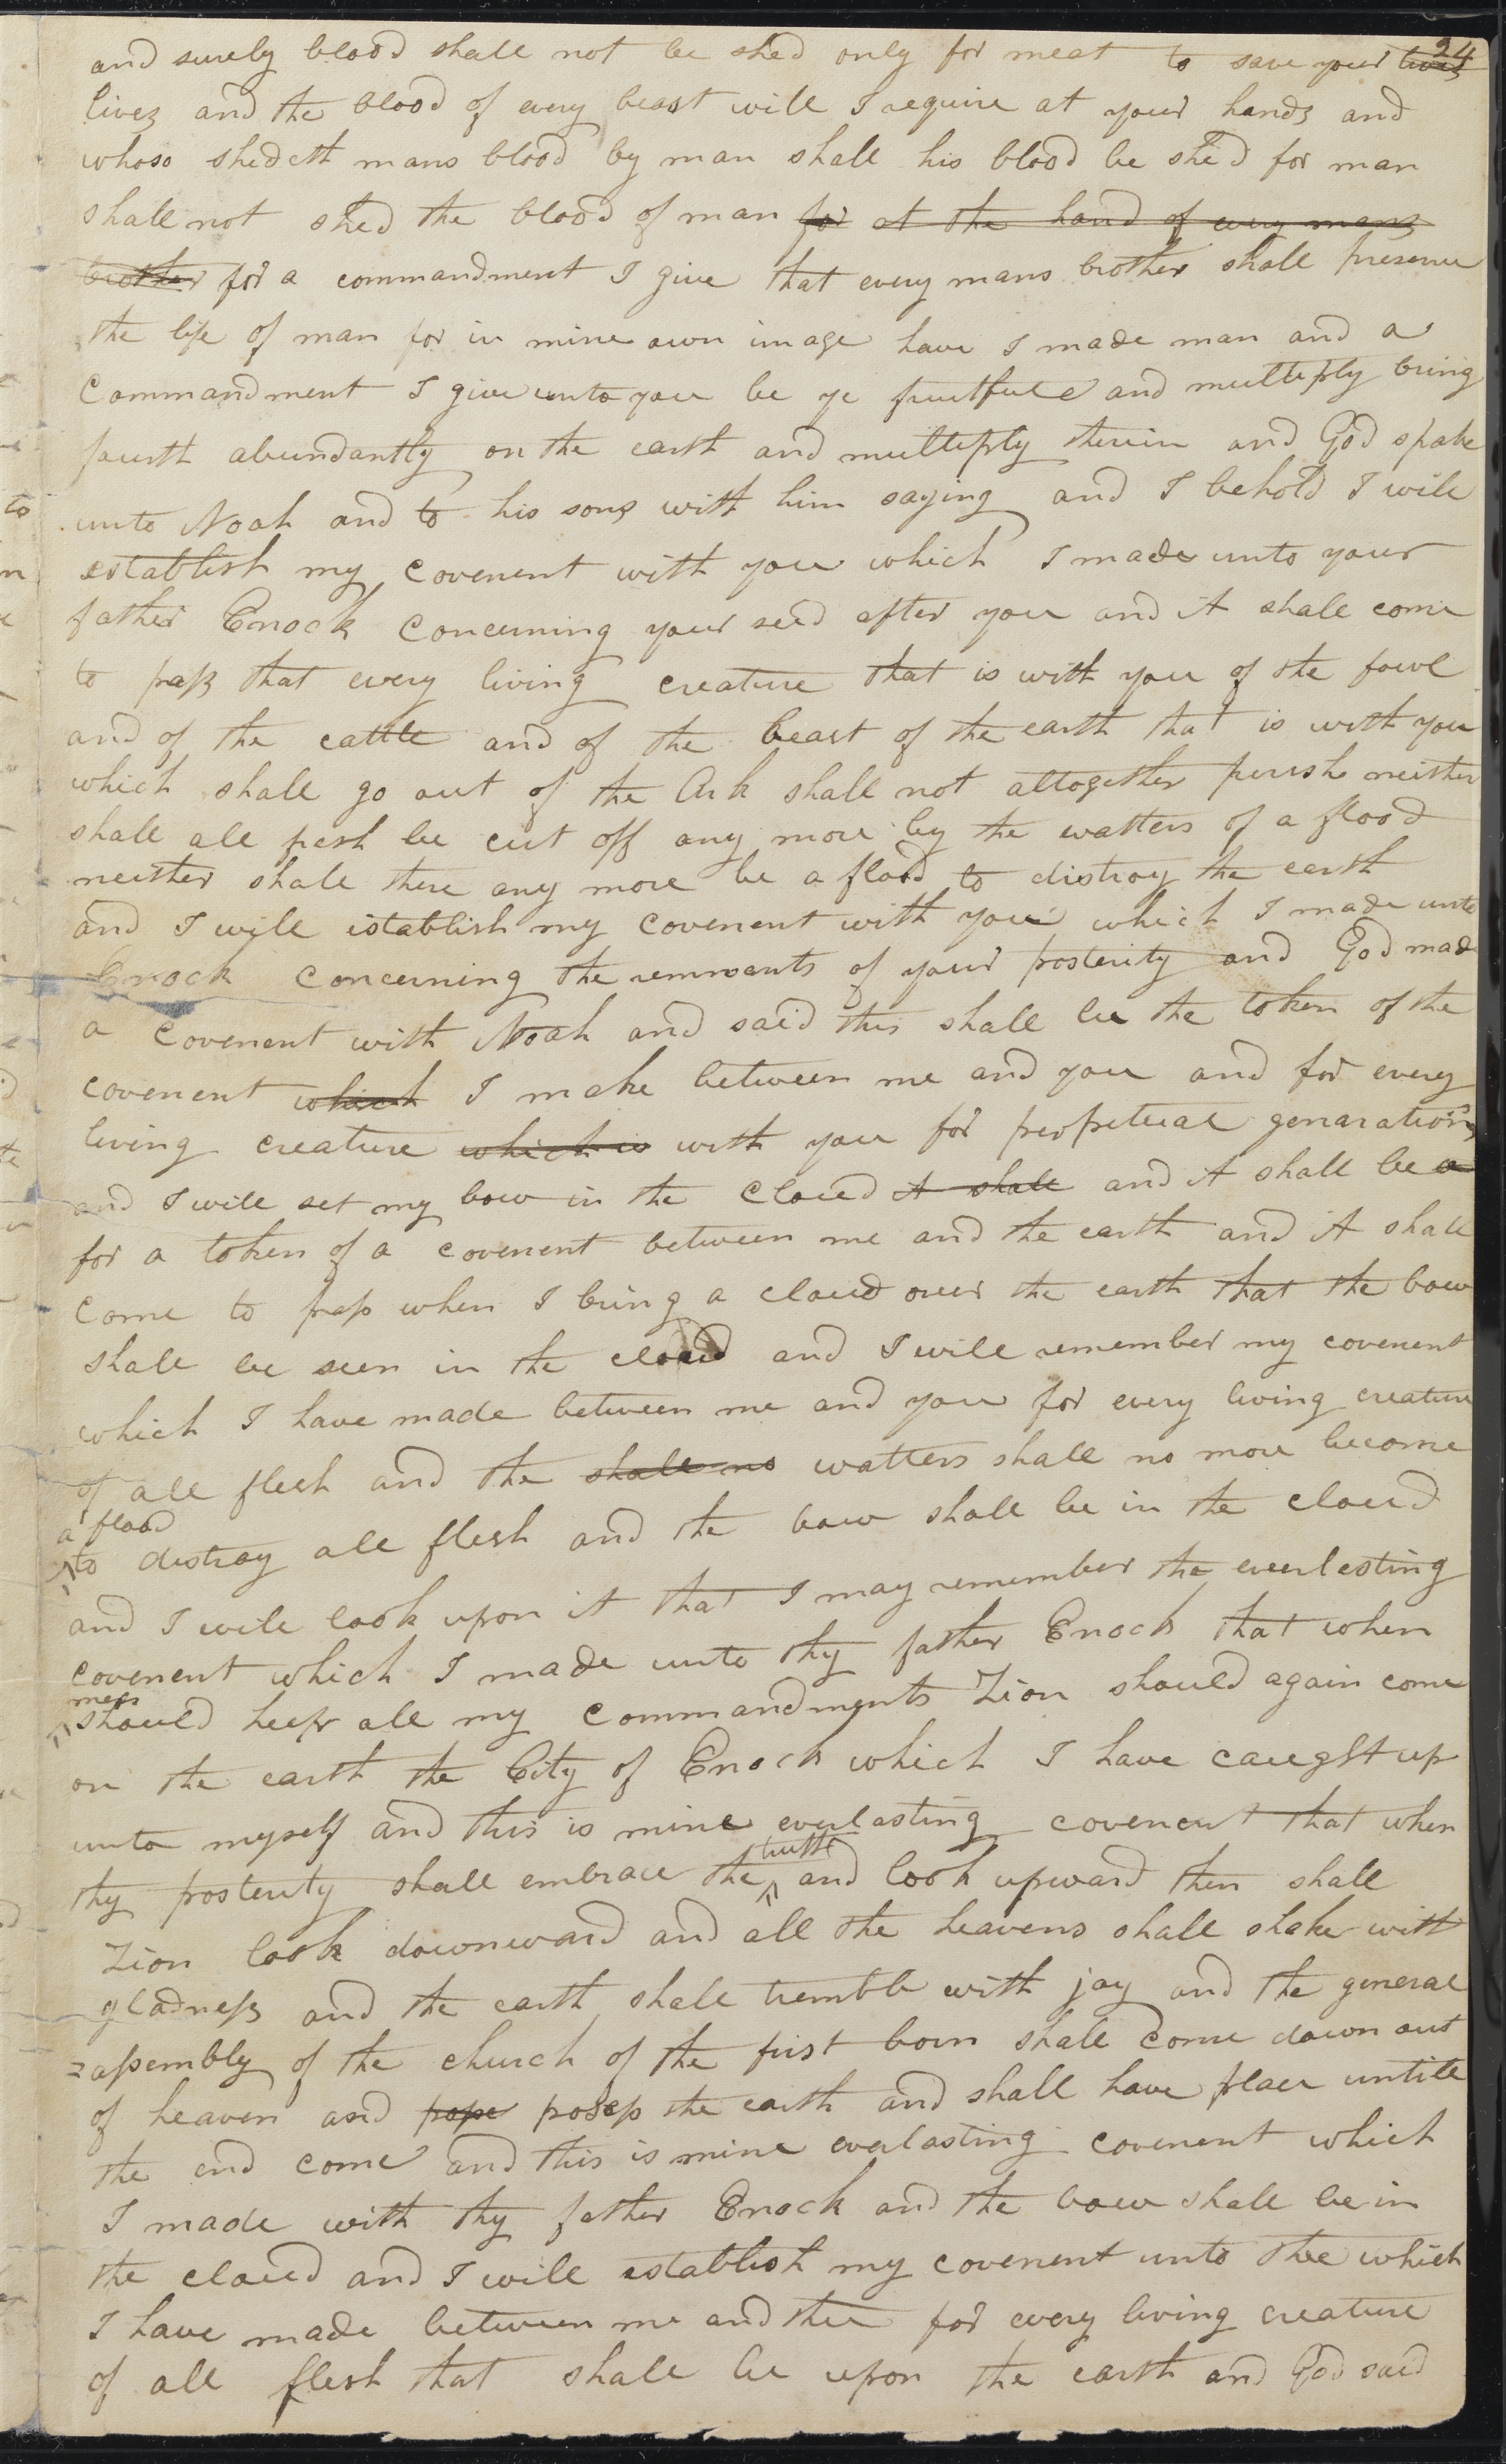 24
and surely blood shall not be shed only for meat to save your lives
lives and the blood of every beast will I require at your hands and
whoso shedeth mans blood by man shall his blood be shed for man
shall not shed the blood of man for at the hand of every mans
brother for a commandment I give that every mans brother shall preserve
the life of man for in mine own image have I made man and a
Commandment I give unto you be ye fruitfull and multeply bring
fourth abundantly on the earth and multeply therein and God spake
unto Noah and to his sons with him saying and I behold I will
establish my Covenent with you which I made unto your
father Enock Concerning your seed after you and it shall come
to pass that every living creature that is with you of the fowl
and of the cattle and of the beast of the earth that is with you
which shall go out of the Ark shall not altogether perish neither
shall all flesh be cut off any more by the watters of a flood
neither shall there any more be a flood to distroy the earth
and I will establish my covenent with you which I made unto
Enock Concerning the remnants of your posterity and God made
a Covenent with Noah and said this shall be the token of the
covenent which I make between me and you and for every
living creature which is with you for perpetual genarations
and I will set my bow in the Cloud it shall and it shall be a
for a token of a covenent between me and the earth and it shall
come to pass when I bring a cloud over the earth that the bow
shall be seen in the cloud and I will remember my covenent
which I have made between me and you for every living creature
of all flesh and the shall no watters shall no more become
a flood
to distroy all flesh and the bow shall be in the cloud
and I will look upon it that I may remember the everlesting
covenent which I made unto thy father Enock that when
men
should keep all my Commandments Zion should again come
on the earth the City of Enock which I have caught up
unto myself and this is mine everlasting covenent that when
truth
thy posterity shall embrace the and look upward then shall
Zion look downward and all the heavens shall shake with
gladness and the earth shall tremble with joy and the general
=assembly of the church of the first born shall come down out
of heaven and posse possess the earth and shall have place untill
the end come and this is mine everlasting covenent which
I made with thy father Enock and the bow shall be in
the cloud and I will establish my covenent unto thee which
I have made between me and thee for every living creature
of all flesh that shall be upon the earth and God said